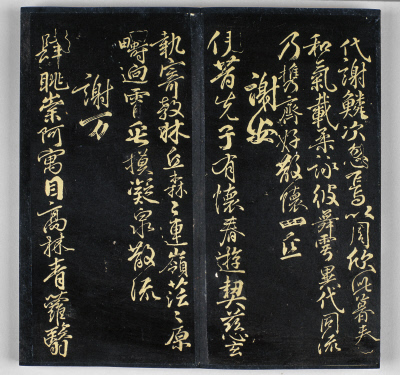 代謝鱗次忽焉以周欣此暮春
和氣載柔詠彼舞雩異代同流
乃攜齊好散懷丘
謝安
伊昔先子有懷春遊契茲言
執寄敖林丘森〻連嶺茫〻原
疇迥霄垂凝泉散流
謝万
肆眺崇阿寓目高林青蘿翳